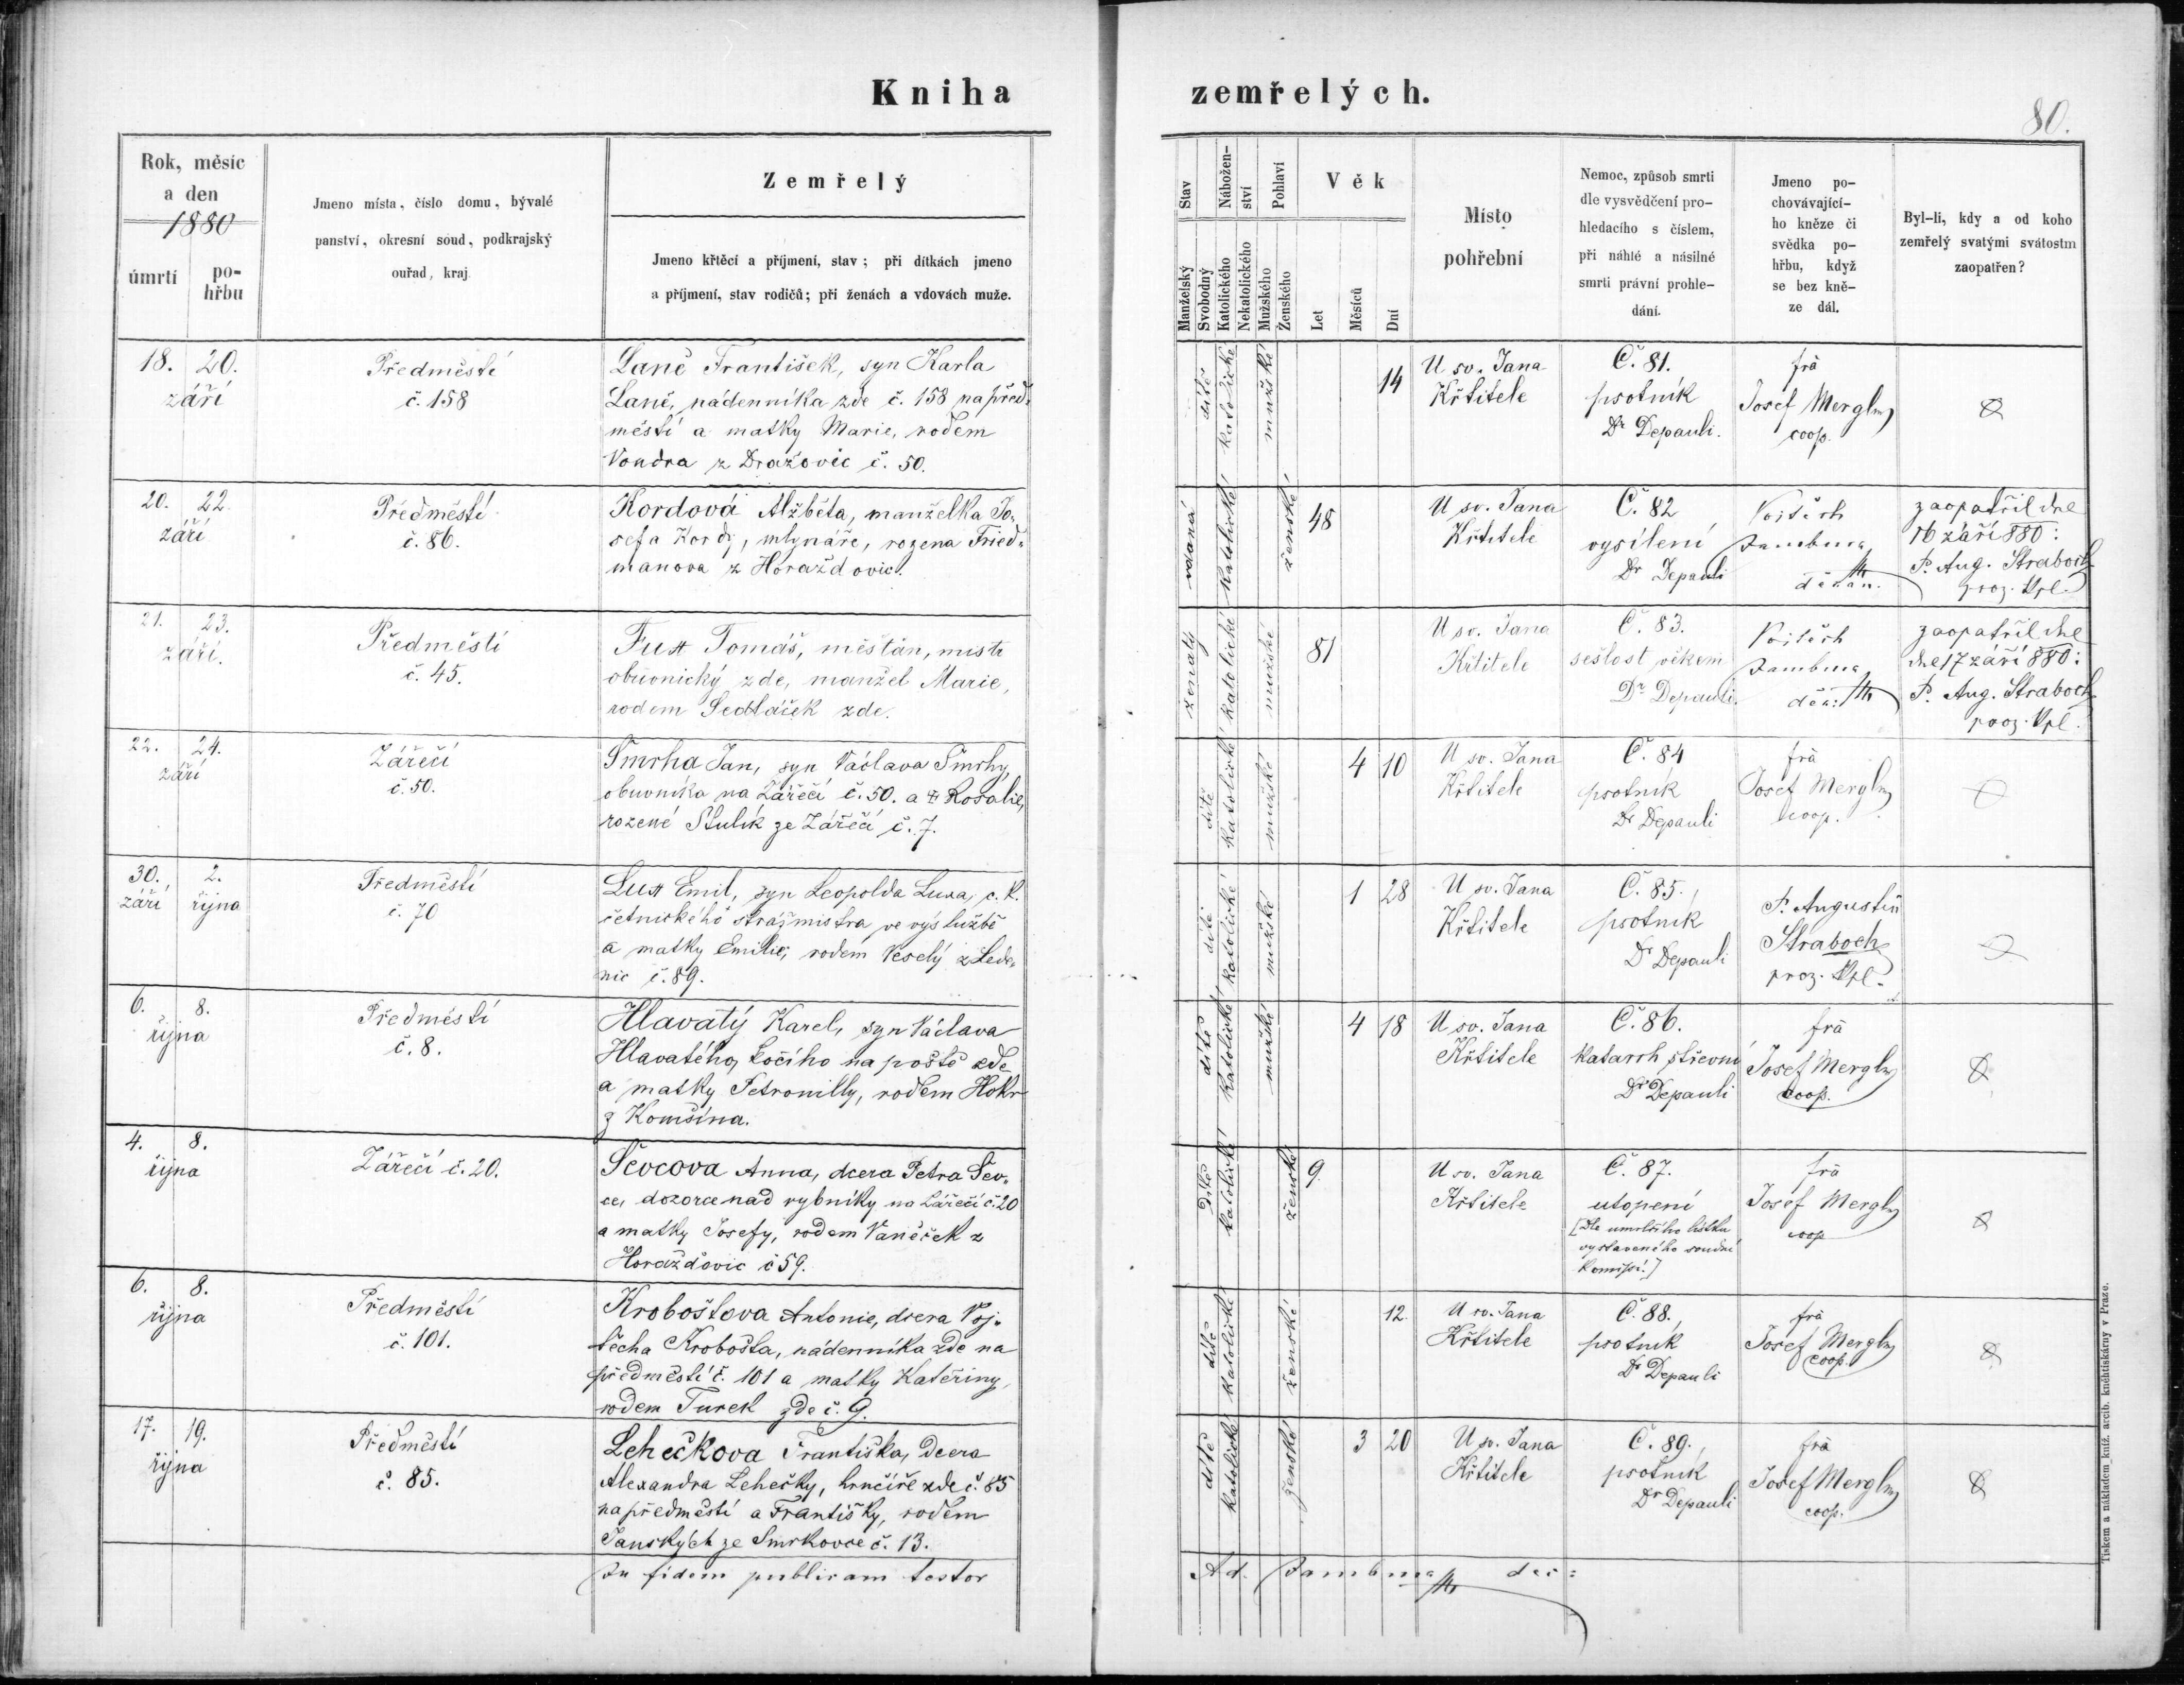 Kniha zemřelých.
80.
Rok, měsíc
a den
1880
úmrtí
po-
hřbu
Jmeno místa, číslo domu, bývalé
panství, okresní soud, podkrajský
ouřad, kraj
Zemřelý
Jmeno křtěcí a příjmení, stav; při dítkách jmeno
a příjmení, stav rodičů; při ženách a vdovách muže.
Stav
Manželský
Svobodný
Nábožen-
ství
Katolického
Nekatolického
Pohlaví
Mužského
Ženského
Věk
Let
Měsíců
Dní
Místo
pohřební
Nemoc, způsob smrti
dle vysvědčení pro-
hledacího s číslem,
při náhlé a násilné
smrti právní prohle-
dání.
Jmeno po-
chovávající-
ho kněze či
svědka po-
hřbu, když
se bez kně-
ze dál.
Byl-li, kdy a od koho
zemřelý svatými svátostm
zaopatřen?
18. 20.
září
Předměstí
č. 158
Lanč František, syn Karla
Lanč, nádenníka zde č. 158 na před-
městí a matky Marie, rodem
Vondra z Dražovic č. 50.
dítě
katolické
mužské
14
U sv. Jana
Křtitele
Č. 81.
psotník
Dr Depauli.
frà
Josef Mergl
coop.
20. 22.
září
Předměstí
č. 86.
Kordová Alžběta, manželka Jo-
sefa Kordy, mlynáře, rozena Fried-
manova z Horažďovic.
vdaná
katolické
ženské
48
U sv. Jana
Křtitele
Č. 82
vysílení
Dr Depauli
Vojtěch
Jambura
děkan.
zaopatřil dne
16 září 880:
P. Aug. Straboch
proz. Kpl.
21. 23.
září.
Předměstí
č. 45.
Fux Tomáš, měšťan, mistr
obuvnický zde, manžel Marie,
rodem Sedláček zde.
ženatý
katolické
mužské
81
U sv. Jana
Křtitele
Č. 83.
sešlost věkem
Dr Depauli.
Vojtěch
Jambura
děk:
zaopatřil dne
dne 17 září 880:
P. Aug. Straboch
proz. Kpl.
22. 24.
září
Zářečí
č. 50.
Šmrha Jan, syn Václava Šmrhy,
obuvníka na Zářečí č. 50. a Rosalie,
rozené Stulík ze Zářečí č. 7.
dítě
katolické
mužské
4 10
U sv. Jana
Křtitele
Č. 84
psotník
Dr Depauli
frà
Josef Mergl
coop.
30. 2.
září října
Předměstí
č. 70
Lux Emil, syn Leopolda Luxa, c. k.
četnického strážmistra ve výslužbě
a matky Emilie, rodem Veselý z Lede-
nic č. 89.
dítě
katolické
mužské
1 28
U sv. Jana
Křtitele
Č. 85.
psotník
Dr Depauli
P. Augustin
Straboch
proz. Kpl.
6. 8.
října
Předměstí
č. 8.
Hlavatý Karel, syn Václava
Hlavatého, kočího na poště zde
a matky Petronilly, rodem Hokr
z Komšína.
dítě
katolické
mužské
4 18
U sv. Jana
Křtitele
Č. 86.
katarrh střevní
Dr Depauli
frà
Josef Mergl
coop.
4. 8.
října
Zářečí č. 20.
Ševcova Anna, dcera Petra Šev-
ce, dozorce nad rybníky na Zářečí č. 20
a matky Josefy, rodem Vaněček z
Horažďovic č 59.
dítě
katolické
ženské
9
U sv. Jana
Křtitele
Č. 87.
utopení
[Dle umrlčího lístku
vystaveného soudní
komisí.]
frà
Josef Mergl
coop
6. 8.
října
Předměstí
č. 101.
Kroboštova Antonie, dcera Voj-
těcha Krobošta, nádenníka zde na
předměstí č. 101 a matky Kateřiny,
rodem Turek zde č. 9.
dítě
katolické
ženské
12.
U sv. Jana
Křtitele
Č. 88.
psotník
Dr Depauli
frà
Josef Mergl
coop.
17. 19.
října
Předměstí
č. 85.
Lehečkova Františka, dcera
Alexandra Lehečky, hrnčíře zde č. 85
na předměstí a Františky, rodem
Janských ze Smrkovce č. 13.
dítě
katolické
ženské
3 20
U sv. Jana
Křtitele
Č. 89.
psotník
Dr Depauli
frà
Josef Mergl
coop.
In fidem publicam testor
Ad. Jambura dec:
Tiskem a nákladem kníž. arcib. knihtiskárny v Praze.